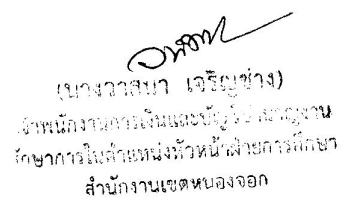 (นางวาสนา เจริญช่าง)
เจ้าพนักงานการเงินและบัญชีชำนาญงาน
รักษาการในตำแหน่งหัวหน้าฝ่ายการศึกษา
สำนักงานเขตหนองจอก